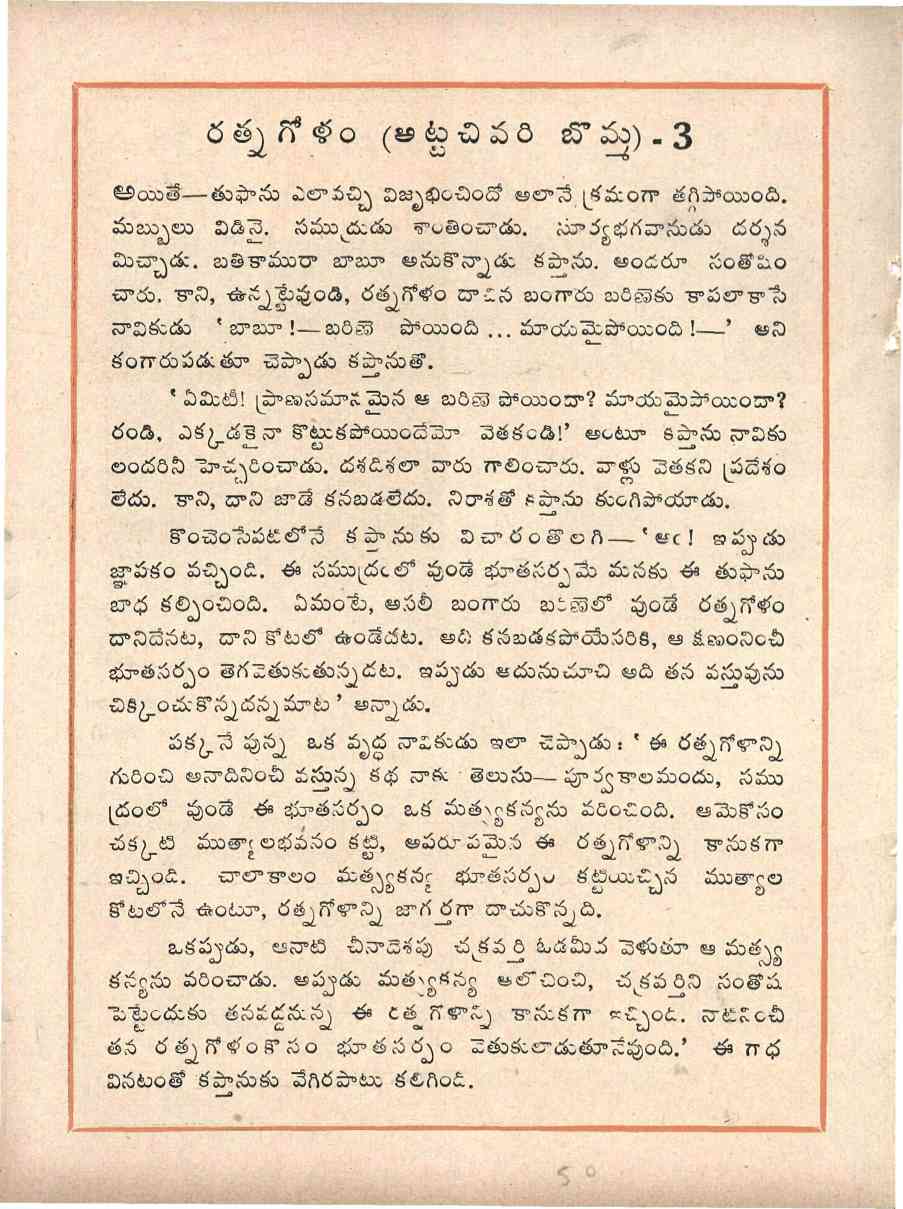 రత్నగోళం (అట్టచివరి బొమ్మ) - 3
అయితే—తుఫాను ఎలావచ్చి విజృభించిందో అలానే క్రమంగా తగ్గిపోయింది.
మబ్బులు విడినై. సముద్రుడు శాంతించాడు. సూర్యభగవానుడు దర్శన
మిచ్చాడు. బతికామురా బాబూ అనుకొన్నాడు కప్తాను. అందరూ సంతోషిం
చారు. కాని, ఉన్నట్టేవుండి, రత్నగోళం దాచిన బంగారు బరిణెకు కాపలాకాసే
నావికుడు ‘బాబూ!—బరిణె పోయింది... మాయమైపోయింది!—’ అని
కంగారుపడుతూ చెప్పాడు కప్తానుతో.
‘ఏమిటీ! ప్రాణసమానమైన ఆ బరిణె పోయిందా? మాయమైపోయిందా?
రండి, ఎక్కడకైనా కొట్టుకపోయిందేమో వెతకండి!’ అంటూ కప్తాను నావికు
లందరినీ హెచ్చరించాడు. దశదిశలా వారు గాలించారు. వాళ్లు వెతకని ప్రదేశం
లేదు. కాని, దాని జాడే కనబడలేదు. నిరాశతో కప్తాను కుంగిపోయాడు.
కొంచెంసేపటిలోనే కప్తానుకు విచారంతొలగి—‘ఆఁ! ఇప్పుడు
జ్ఞాపకం వచ్చింది. ఈ సముద్రంలో వుండే భూతసర్పమే మనకు ఈ తుఫాను
బాధ కల్పించింది. ఏమంటే, అసలీ బంగారు బరిణెలో వుండే రత్నగోళం
దానిదేనట, దాని కోటలో ఉండేదట. అది కనబడకపోయేసరికి, ఆ క్షణంనించీ
భూతసర్పం తెగవెతుకుతున్నదట. ఇప్పుడు అదునుచూచి అది తన వస్తువును
చిక్కించుకొన్నదన్నమాట’ అన్నాడు.
పక్కనే వున్న ఒక వృద్ధ నావికుడు ఇలా చెప్పాడు: ‘ఈ రత్నగోళాన్ని
గురించి అనాదినించీ వస్తున్న కథ నాకు తెలుసు—పూర్వకాలమందు, సము
ద్రంలో వుండే ఈ భూతసర్పం ఒక మత్స్యకన్యను వరించింది. ఆమెకోసం
చక్కటి ముత్యాలభవనం కట్టి, అపరూపమైన ఈ రత్నగోళాన్ని కానుకగా
ఇచ్చింది. చాలాకాలం మత్స్యకన్య భూతసర్పం కట్టియిచ్చిన ముత్యాల
కోటలోనే ఉంటూ, రత్నగోళాన్ని జాగర్తగా దాచుకొన్నది.
ఒకప్పుడు, ఆనాటి చీనాదేశపు చక్రవర్తి ఓడమీద వెళుతూ ఆ మత్స్య
కన్యను వరించాడు. అప్పుడు మత్స్యకన్య ఆలోచించి, చక్రవర్తిని సంతోష
పెట్టేందుకు తనవద్దనున్న ఈ రత్నగోళాన్ని కానుకగా ఇచ్చింది. నాటినించీ
తన రత్నగోళంకోసం భూతసర్పం వెతుకులాడుతూనేవుంది.’ ఈ గాధ
వినటంతో కప్తానుకు వేగిరపాటు కలిగింది.
50